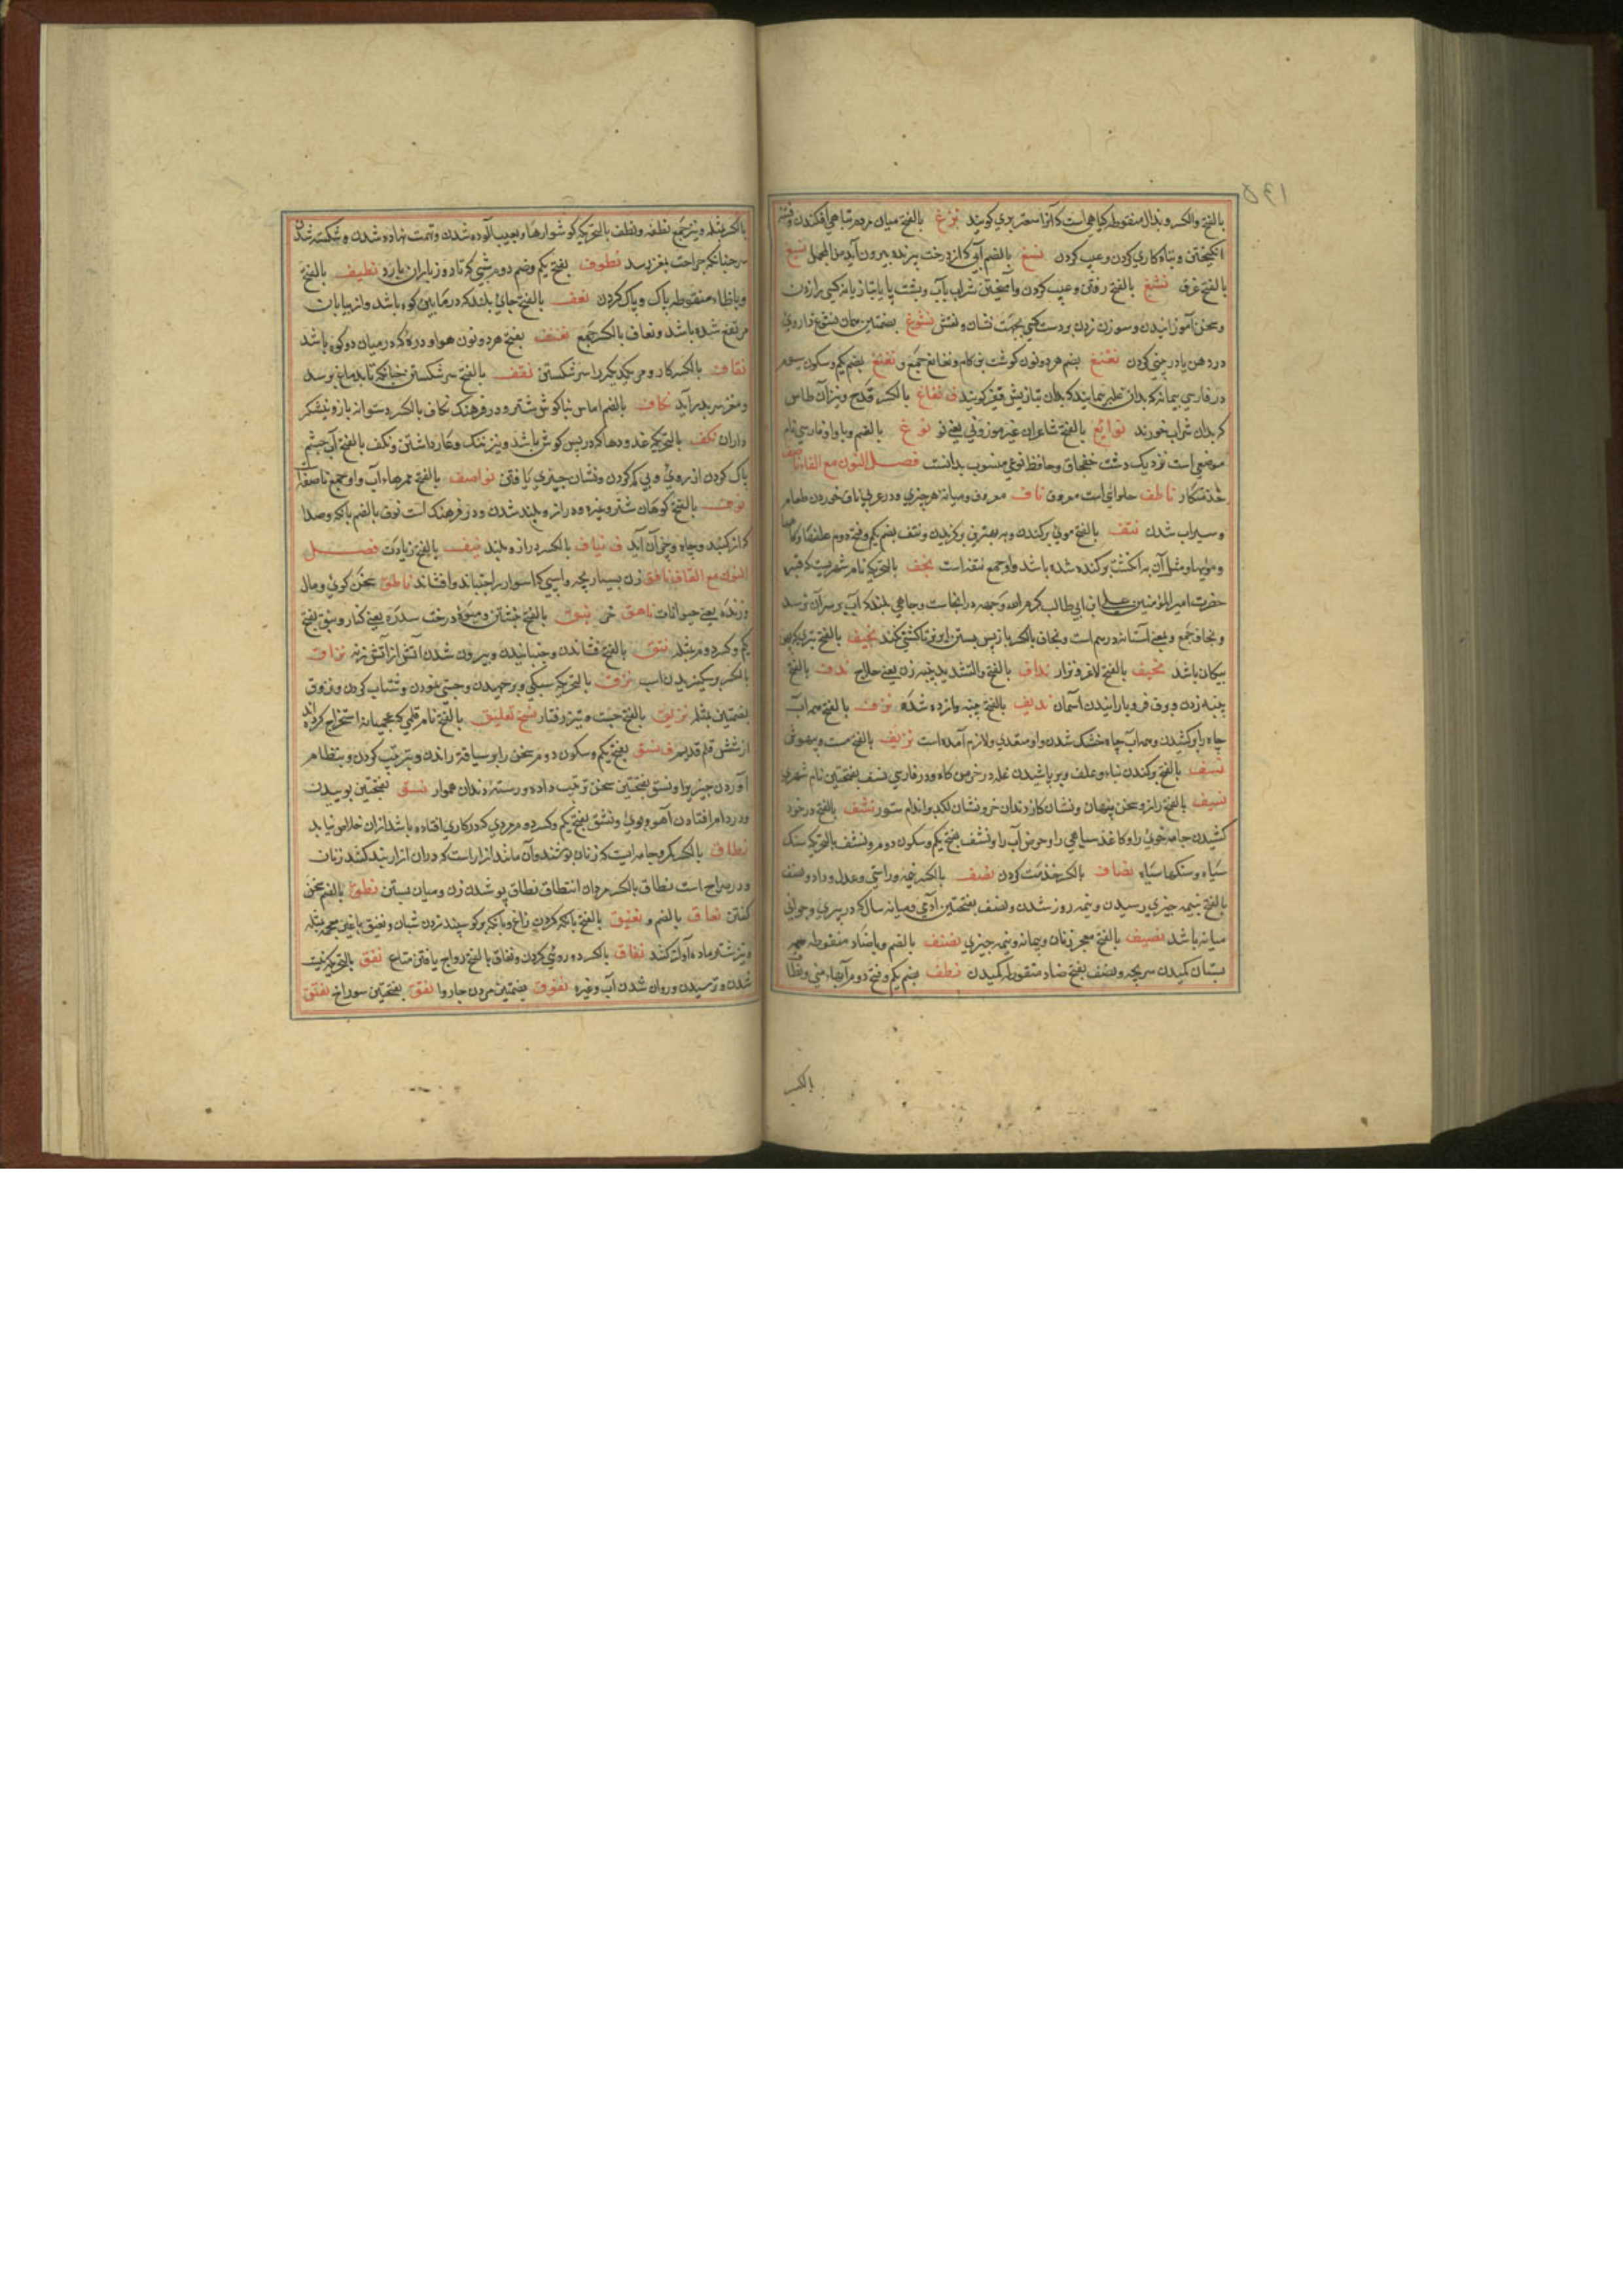 بالفتح والکسر و بدال منقوطه کیاهی است که آنرا سعتر بری کویند نزغ بالفتح میان مردم تباهی افکندن و فتنه
انکیختن و تباه کاری کردن و عیب کردن نسغ بالضم آبی که از درخت بریده بیرون آید من المجمل نسغ
بالفتح عرق نشغ بالفتح رفتن و عیب کردن و آمیختن شراب بآب و
و سخن آموزانیدن و سوزن زدن بر دست کسی بجهت نشان و نقش نشوغ بضمتین همان نشوع داروی
در دهن یا در بینی کردن نغنغ بضم هر دو نون کوشت بن کام و نغانغ جمع و نغنغ بضم یکم و سکون سوم
در فارسی پیمانه که بدان غله پیمایند که بدان بتازیش قفیز کویند ف نفاغ بالکسر قدح و نیز آن طاس
که بدان شراب خورند نوابغ بالفتح شاعران غیر موزونی یعنی نو نوغ بالضم و با واو فارسی نام
موضعی است نزدیک دشت خفجاق و حافظ نوغی منسوب بدانست فصل النون مع الفاء ناصف
خدمتکار ناطف حلوائی است معروف ناف معروف و میانه هر چیزی و در عربی ناف خوردن طعام
و سیراب شدن نتف بالفتح موی برکندن و نتف بضم یکم و فتح دوم
و مویها و مثل آن به انکشت برکنده شده باشد واو جمع نتفه است نجف بالتحریک نام شهریست که قبر
حضرت امیر المؤمنین علی ابن ابی طالب کرم الله وجهه در انجاست و جاهی بلند که آب بر سر آن نرسد
و نجاف جمع و بمعنی آستانه در هم است و نجاف بالکسر
پیکان باشد نحیف بالفتح لاغر و نزار نداف بالفتح والتشدید پنبه زن یعنی حلاج ندف بالفتح
پنبه زدن و برف فرو بارانیدن آسمان ندیف بالفتح پنبه وازده شده نزف بالفتح همه آب
چاه را برکشیدن و همه آب چاه خشک شدن واو متعدی و لازم آمده است نزیف بالفتح مست و بیهوش
نسف بالفتح برکندن بناء و علف و بر پاشیدن غله در خرمن کاه و در فارسی نسف بفتحتین نام شهری
نسیف بالفتح راز و سخن پنهان و نشان کاز دندان خر و نشان لکد بر اندام ستور نشف بالفتح در خود
کشیدن جامه خوی را و کاغذ سیاهی را و حوض آب را و نشف بفتح یکم و سکون دوم و نشف بالتحریک سنک
سیاه و سنکها سیاه نصاف بالکسر خدمت کردن نصف بالکسر نیمه و راستی و عدل و داد و نصف
بالفتح بنیمه چیزی رسیدن و نیمه روز شدن و نصف بفتحتین آدمی میانه سال که در پیری و جوانی
میانه باشد نصیف بالفتح معجر زنان و پیمانه و نیمه چیزی نضف بالضم و باضاد منقوطه همه
پستان مکیدن سر بچه و نضف بفتح ضاد منقوطه مکیدن نطف بضم یکم و فتح دوم آبهاء منی و نطاف
بالکسر
بالکسر مثله و نیز جمع نطفه و نطف بالتحریک کوشوارها و بعیب آلوده شدن و تهمت نهاده شدن و شکسته شدن
سر چنانکه جراحت بمغز رسد نطوف بفتح یکم و ضم دوم شبی که تا روز باران بارد نظیف بالفتح
و باظاء منقوطه پاک و پاک کردن نعف بالفتح جائی بلند که در مابین کوه باشد و از بیابان
مرتفع شده باشد و نعاف بالکسر جمع نفنف بفتح هر دو نون هوا و دره که در میان دو کوه باشد
نقاف بالکسر کارد مر یکدیکر را سر شکستن نقف بالفتح سر شکستن چنانکه تا بدماغ برسد
و مغز سر بدر آید نکاف بالضم اماس بناکوش شتر و در فرهنک نکاف بالکسر
داران نکف بالتحریک غدودها که در پس کوش باشد و نیز ننک و عار داشتن و نکف بالفتح آب چشم
پاک کردن از روی و پی کم کردن و نشان چیزی یافتن نواصف بالفتح ممرهاء آب واو جمع ناصفة
نوف بالفتح کوهان شتر و غیره و دراز و بلند شدن و در فرهنک است نوف بالضم بانکه و صدا
که از کنبد و چاه و جز آن آید ف نیاف بالکسر دراز و بلند نیف بالفتح زیادت فصل
النون مع القاف ناتق زن بسیار بچه و اسپی که اسوار را جنباند و افشاند ناطق سخن کوی و مال
و زنده یعنی حیوانات ناهق خر نبق بالفتح نبشتن و میوه درخت سدره یعنی کنار و نبق بفتح
یکم و کسر دوم مثله نتق بالفتح فشاندن و جنبانیدن و بیرون شدن آتش از آتش زنه نزاق
بالکسر نزق بالتحریک سبکی و برجهیدن و چستی نمودن و شتاب کردن و نزوق
بضمتین مثله نزیق بالفتح چست و تیز رفتار نسخ تعلیق بالفتح نام قلمی که عجمیانه استخراج کرده اند
از شش قلم قدیم ف نسق بفتح یکم و سکون دوم سخن را بر سیاقة راندن و بترتیب کردن و بنظام
آوردن چیز را و نسق بفتحتین سخن ترتیب داده و رسته دندان هموار نشق بفتحتین بوییدن
و در دام افتادن آهو و بوی و نشق بفتح یکم و کسر دوم مردی که در کاری افتاده باشد از آن خلاص نیابد
نطاق بالکسر کمر و جامه ایست که زنان پوشند و آن مانند ازار است که در آن ازار بند کشند زنان
و در صراح است نطاق بالکسر میان انتطاق نطاق پوشیدن زن و میان بستن نطق بالضم سخن
کفتن نعاق بالضم و نعیق بالفتح بانکه کردن زاغ و بانکه بر کوسپند زدن شبان و نغیق باغین معجمه مثله
و نیز شتر ماده آواز کنند نفاق بالکسر دو روئی کردن و نفاق بالفتح رواج یافتن متاع نفق بالتحریک نیست
شدن و ترسیدن و روان شدن آب و غیره نفوق بضمتین مردن چاروا نفق بفتحتین سوراخ نفتق